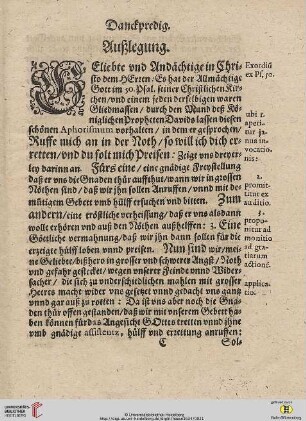 Danckpredig.
Außlegung.
GEliebte vnd Andächtige in Chri-
sto dem HErren: Es hat der Allmächtige
Gott im 50. Psal. seiner Christlichen Kir-
chen/vnd einem jeden derselbigen waren
Gliedmassen/ durch den Mund deß Kö-
niglichen Propheten Davids lassen diesen
schönen Aphorismum vorhalten/ in dem er gesprochen/
Ruffe mich an in der Noth/ so will ich dich er-
retten/vnd du solt mich Preisen: Zeigt vns dreyer-
ley darinn an. Fürs eine/ eine gnädige Fürstellung
daß er vns die Gnaden thür auffthut/wann wir in grossen
Nöthen sind/daß wir jhn sollen Anruffen/vnnd mit de-
mütigem Gebett vmb hülff ersuchen vnd bitten. Zum
andern/ eine tröstliche verheissung/ daß er vns alsdann
wolle erhören vnd auß den Nöthen außhelffen: 3. Eine
Göttliche vermahnung/daß wir jhn dann sollen für die
erzeigte hülff loben vnnd preisen. Nun sind wir/mei-
ne Geliebte/bißhero in grosser vnd schwerer Angst/ Noth
vnd gefahr gesteckt/ wegen vnserer Feinde vnnd Wider-
sacher/ die sich zu vnderschiedlichen mahlen mit grosser
Heeres macht wider vns gesetzt vnnd gedacht vns gantz
vnnd gar auß zu rotten: Da ist vns aber noch die Gna-
den thür offen gestanden/daß wir mit vnserem Gebett ha-
ben können für das Angesicht GOttes tretten vnnd jhne
vmb gnädige assistentz, hülff vnd errettung anruffen:
C
Sol-
Exordiũ
ex Ps. 50.
ubi 1.
aperi-
tur ja-
nua in-
vocatio-
nis:
2.
promit-
titur ex-
auditio.
3.
propo-
nitur ad
monitio
ad gra-
tiarum
actionẽ.
applica-
tio.
UNIVERSITÄTS-
BIBLIOTHEK
HEIDELBERG
© Universitätsbibliothek Heidelberg
gefördert durch